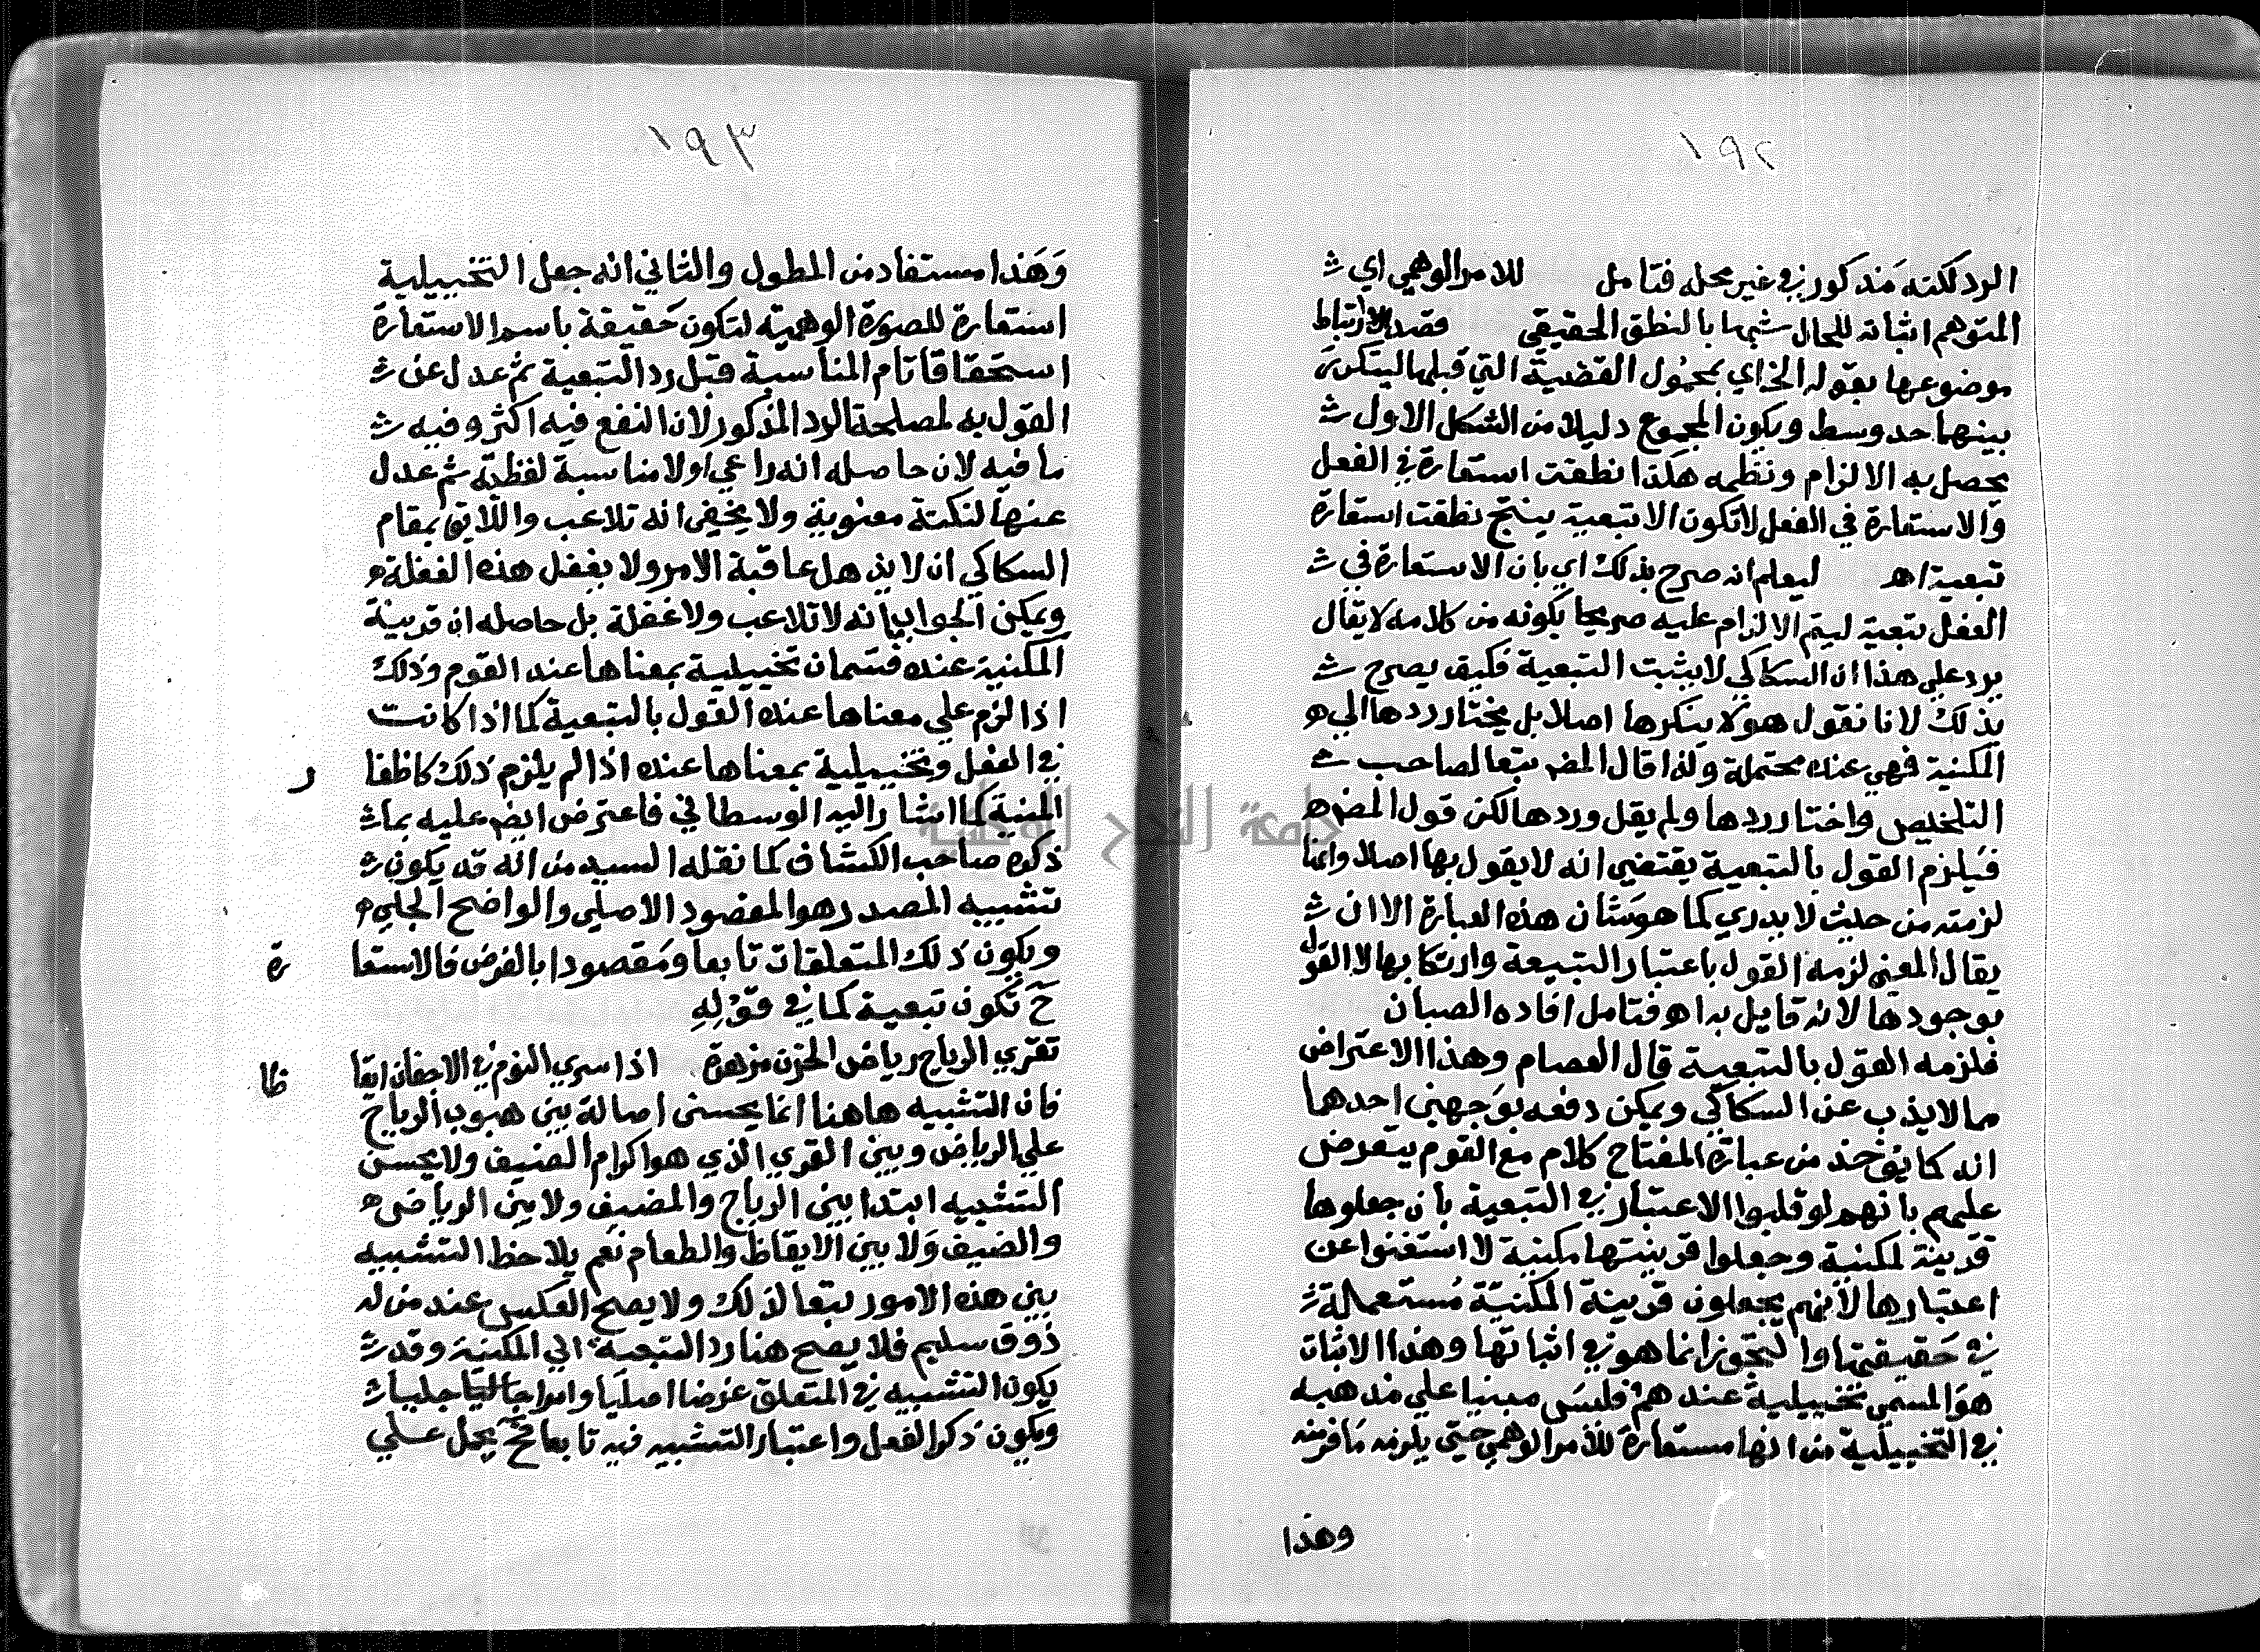 ١٩٢
الرد لكنه مذكور في غير محله فتامل للامر الوهمي اي
المتوهم اثباته للحال شبها بالنطق الحقيقي قصد الارتباط
موضوعها بقوله الخ اي بمحمول القضية التي قبلها ليتكرر
بينهما حد وسط ويكون المجموع دليلا من الشكل الاول
يحصل به الالزام ونظمه هكذا نطقت استعارة في الفعل
والاستعارة في الفعل لا تكون الا تبعية ينتج نطقت استعارة
تبعية اهـ ليعلم انه صرح بذلك اي بان الاستعارة في
الفعل تبعية ليتم الالزام عليه صريحا بكونه من كلامه لا يقال
يرد علي هذا ان السكاكي لا يثبت التبعية فكيف يصرح
بذلك لانا نقول هو لا ينكرها اصلا بل يختار ردها الي
المكنية فهي عنده محتملة ولذا قال المص تبعا لصاحب
التلخيص واختار ردها ولم يقل وردها لكن قول المص
فيلزم القول بالتبعية يقتضي انه لا يقول بها اصلا وانما
لزمته من حيث لا يدري كما هو شان هذه العبارة الا ان
يقال المعني لزمه القول باعتبار التبيعة وارتكابها لا القول
بوجودها لانه قايل به اهـ فتامل افاده الصبان
فلزمه القول بالتبعية قال العصام وهذا الاعتراض
مما لا يذب عن السكاكي ويمكن دفعه بوجهين احدهما
انه كما يؤخذ من عبارة المفتاح كلام مع القوم يتعرض
عليهم بانهم لو قلبوا الاعتبار في التبعية بان جعلوها
قرينة لمكنية وجعلوا قرينتها مكنية لاستغنوا عن
اعتبارها لانهم يجعلون قرينة المكنية مستعملة
في حقيقتها والتجوز انما هو في اثباتها وهذا الاثبات
هو المسمي تخييلية عندهم فليس مبنيا علي مذهبه
في التخييلية من انها مستعارة للامر الوهمي حتى يلزمه ما فر منه
وهذا
١٩٣
وهذا مستفاد من المطول والثاني انه جعل التخييلية
استعارة للصورة الوهمية لتكون حقيقة باسم الاستعارة
استحقاقا تام المناسبة قبل رد التبعية ثم عدل عن
القول به لمصلحة الرد المذكور لان النفع فيه اكثر وفيه
ما فيه لان حاصله انه راعي اولا مناسبة لفظية ثم عدل
عنها لنكتة معنوية ولا يخفي انه تلاعب واللايق بمقام
السكاكي ان لا يذهل عاقبة الامر ولا يغفل هذه الغفلة
ويمكن الجواب بانه لا تلاعب ولا غفلة بل حاصله ان قرينة
المكنية عنده قسمان تخييلية بمعناها عند القوم وذلك
اذا لزم علي معناها عنده القول بالتبعية كما اذا كانت
في الفعل وتخييلية بمعناها عنده اذا لم يلزم ذلك كاظفار
المنية كما اشار اليه الوسطاني فاعترض ايض عليه بما
ذكره صاحب الكشاف كما نقله السيد من انه قد يكون
تشبيه المصدر هو المقصود الاصلي والواضح الجلي
ويكون ذلك المتعلقات تابعا ومقصودا بالفرض فالاستعارة
ح تكون تبعية كما في قوله
تقري الرياح رياض الحزن مزهرة اذا سري النوم في الاجفان ايقاظا
فان التشبيه هاهنا انما يحسن اصالة بين هبوب الرياح
علي الرياض وبين القري الذي هو اكرام الضيف ولا يحسن
التشبيه ابتدا بين الرياح والمضيف ولا بين الرياض
والضيف ولا بين الايقاظ والطعام نعم يلاحظ التشبيه
بين هذه الامور تبعا لذلك ولا يصح العكس عند من له
ذوق سليم فلا يصح هنا رد التبعية الي المكنية وقد
يكون التشبيه في المتعلق غرضا اصليا وامرا جليا
ويكون ذكر الفعل واعتبار التشبيه فيه تابعا فح يحمل علي